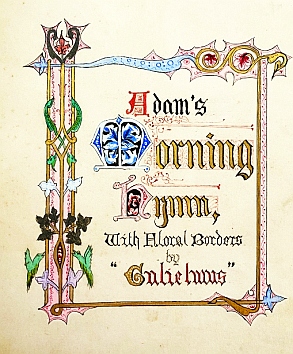 Adam's
Morning
Hymn,
With Floral Borders
by
"Gulielmus"